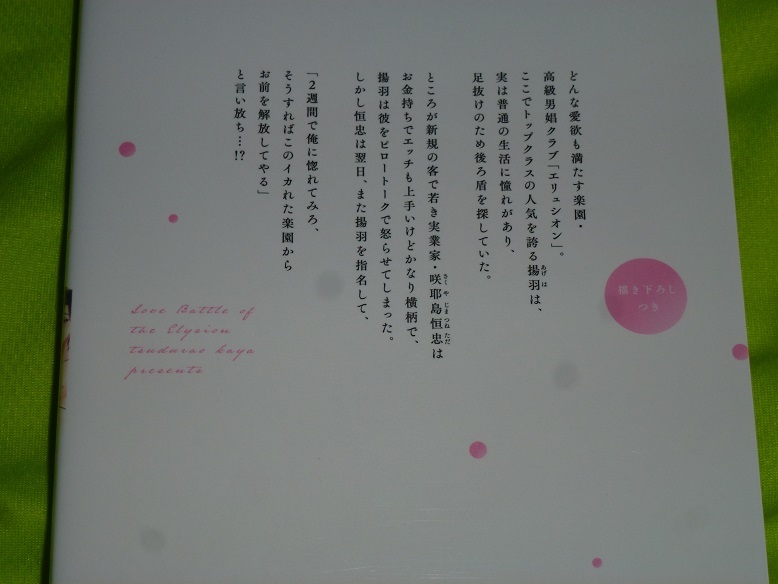 どんな愛欲も満たす楽園・
高級男娼クラブ「エリュシオン」。
ここでトップクラスの人気を誇る揚羽は、
実は普通の生活に憧れがあり、
足抜けのため後ろ盾を探していた。
ところが新規の客で若き実業家・咲耶島恒忠は
お金持ちでエッチも上手いけどかなり横柄で、
揚羽は彼をピロートークで怒らせてしまった。
しかし恒忠は翌日、また揚羽を指名して、
「2週間で俺に惚れてみろ、
そうすればこのイカれた楽園から
お前を解放してやる」
と言い放ち…!?
描き下ろし
つき
Love Battle of
the Elysion
tendurao kaya
presents